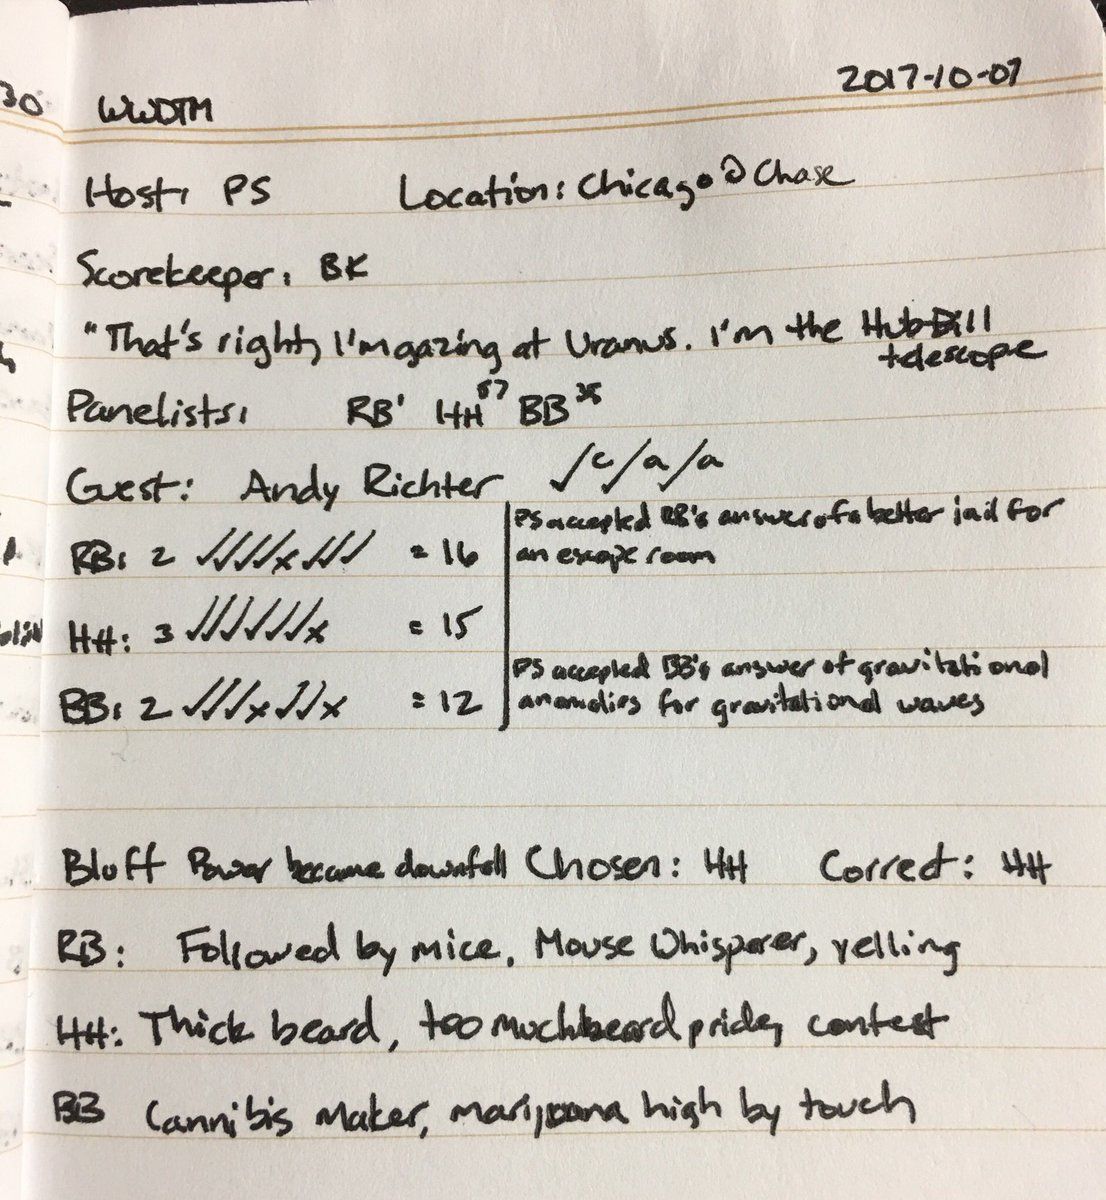 30
WWDTM 2017-10-07
Host: PS Location: Chicago @ Chase
Scorekeeper: BK
"That's right, I'm gazing at Uranus. I'm the Hub-Bill
telescope
Panelists: RB' HH BB
Guest: Andy Richter ✓c/a/a
PS accepted RB's answer of a better jail for
RB: 2 ✓✓✓✓x✓✓✓ = 16 an escape room
HH: 3 ✓✓✓✓✓✓x = 15
PS accepted BB's answer of gravitational
BB: 2 ✓✓✓x✓✓x = 12 anomolies for gravitational waves
Bluff Power became downfall Chosen: HH Correct: HH
RB: Followed by mice, Mouse Whisperer, yelling
HH: Thick beard, too much beard pride, contest
BB Cannibis Maker, marijuana high by touch